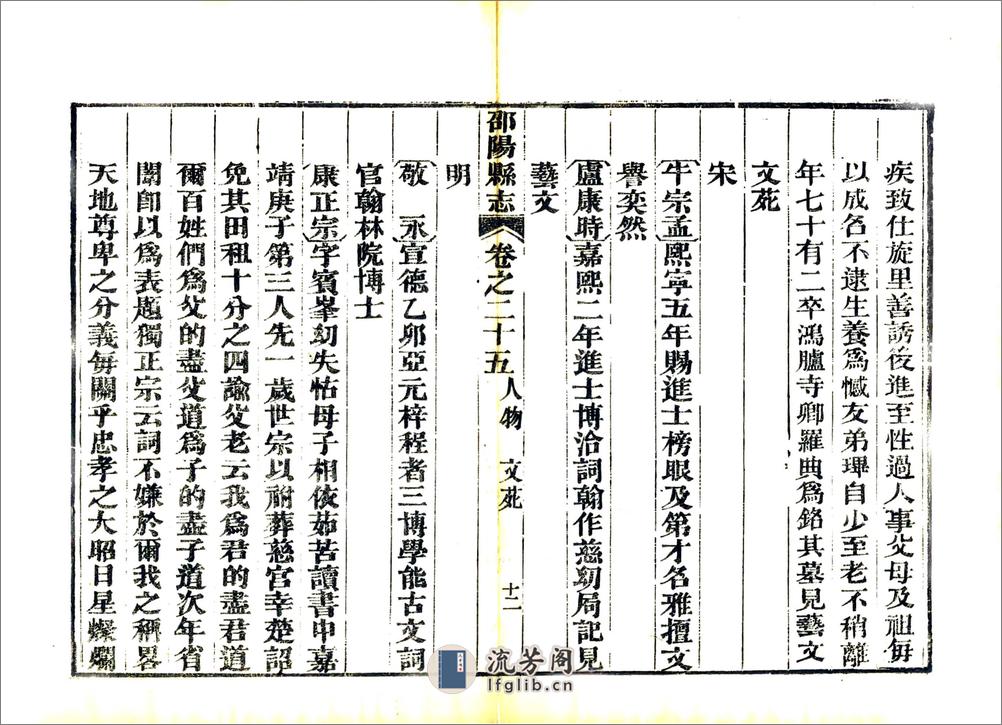 疾致仕旋里善誘後進至性過人事父母及祖每
以成名不逮生養爲憾友弟瑾自少至老不稍離
年七十有二卒鴻臚寺卿羅典爲銘其墓見藝文
文苑
宋
牛宗孟熙寧五年賜進士榜眼及第才名雅擅文
譽奕然
盧康時嘉熙二年進士博洽詞翰作慈幼局記見
藝文
邵陽縣志
卷之二十五
人物
文苑
十二
明
敬永宣德乙卯亞元梓程者三博學能古文詞
官翰林院博士
康正宗字賓峯幼失怙母子相依茹苦讀書中嘉
靖庚子第三人先一歲世宗以祔葬慈宮幸楚詔
免其田租十分之四諭父老云我爲君的盡君道
爾百姓們爲父的盡父道爲子的盡子道次年省
闈卽以爲表題獨正宗云詞不嫌於爾我之稱畧
天地尊卑之分義每關乎忠孝之大昭日星燦爛
流芳阁
lfglib.cn